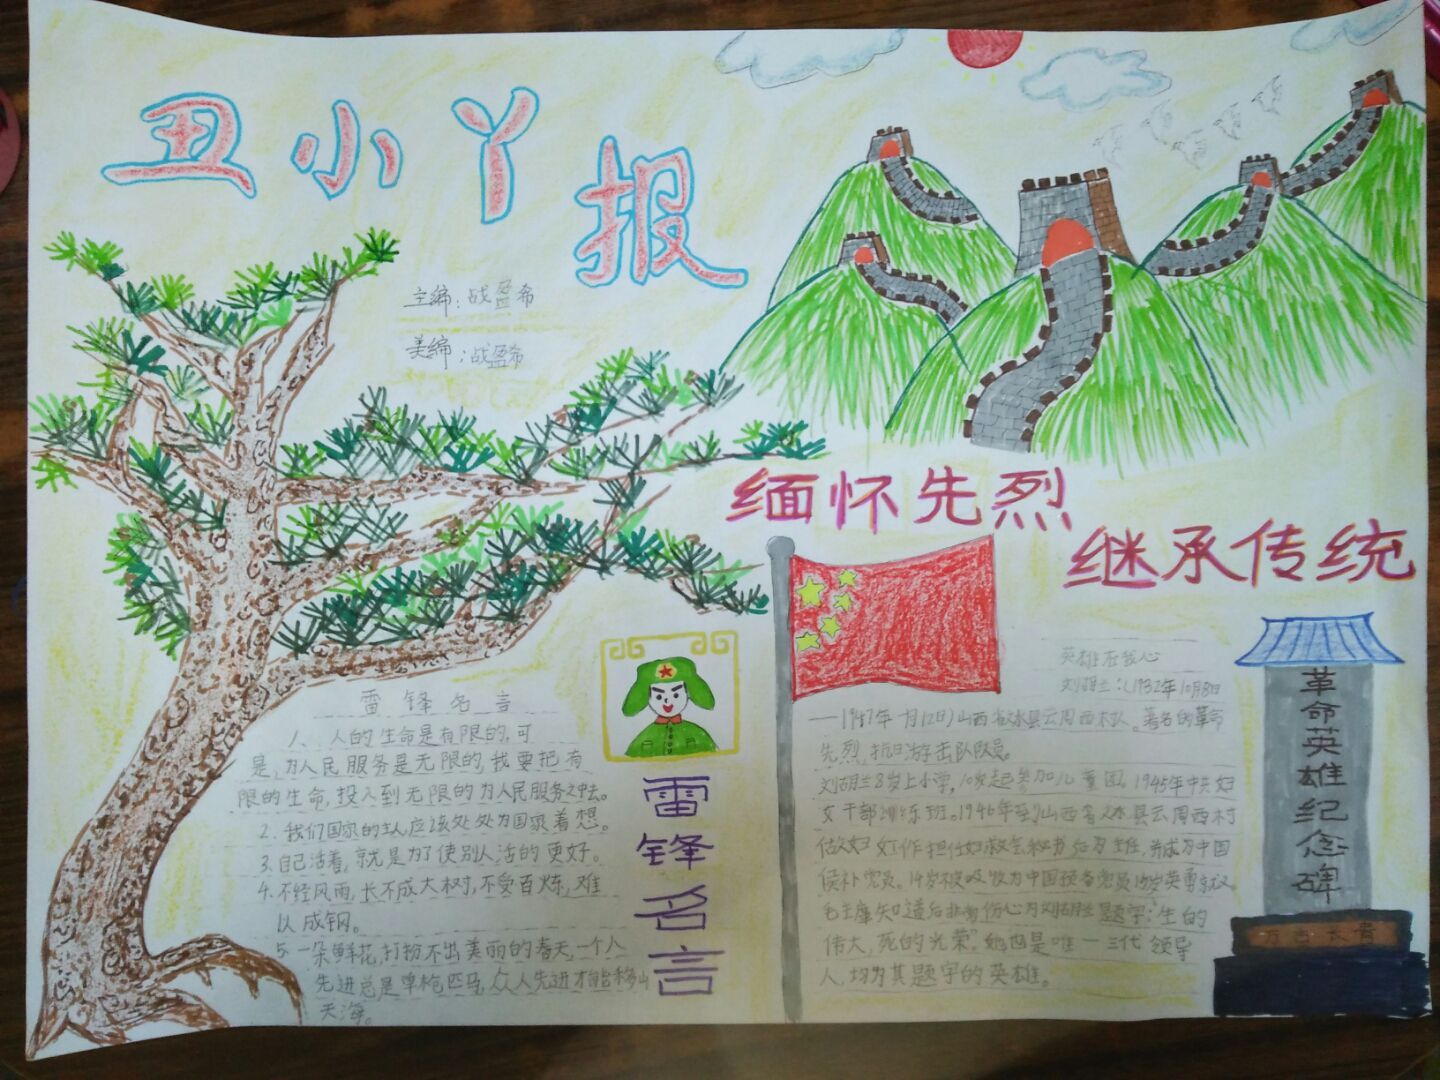 丑小丫报
主编：战盈希
美编：战盈希
缅怀先烈
继承传统
雷锋名言
1、人的生命是有限的,可
是,为人民服务是无限的,我要把有
限的生命,投入到无限的为人民服务之中去。
2.我们国家的主人应该处处为国家着想。
3.自己活着,就是为了使别人活的更好。
4.不经风雨,长不成大树,不受百炼,难
以成钢。
5.一朵鲜花,打扮不出美丽的春天,一个人
先进总是单枪匹马,众人先进才能移山
天海。
雷锋名言
英雄在我心
刘胡兰：(1932年10月8日
—1947年一月12日)山西省文水县云周西村人。著名的革命
先烈,抗日游击队队员。
刘胡兰8岁上小学,10岁起参加儿童团,1945年中共妇
女干部训练班。1946年到山西省文水县云周西村
做妇女工作担任妇救会秘书后为主任,并成为中国
侯补党员。14岁被吸收为中国预备党员
毛主席知道后非常伤心为刘胡兰题字:"生的
伟大,死的光荣"她也是唯一三代领导
人,均为其题字的英雄。
革命英雄纪念碑
万古长青